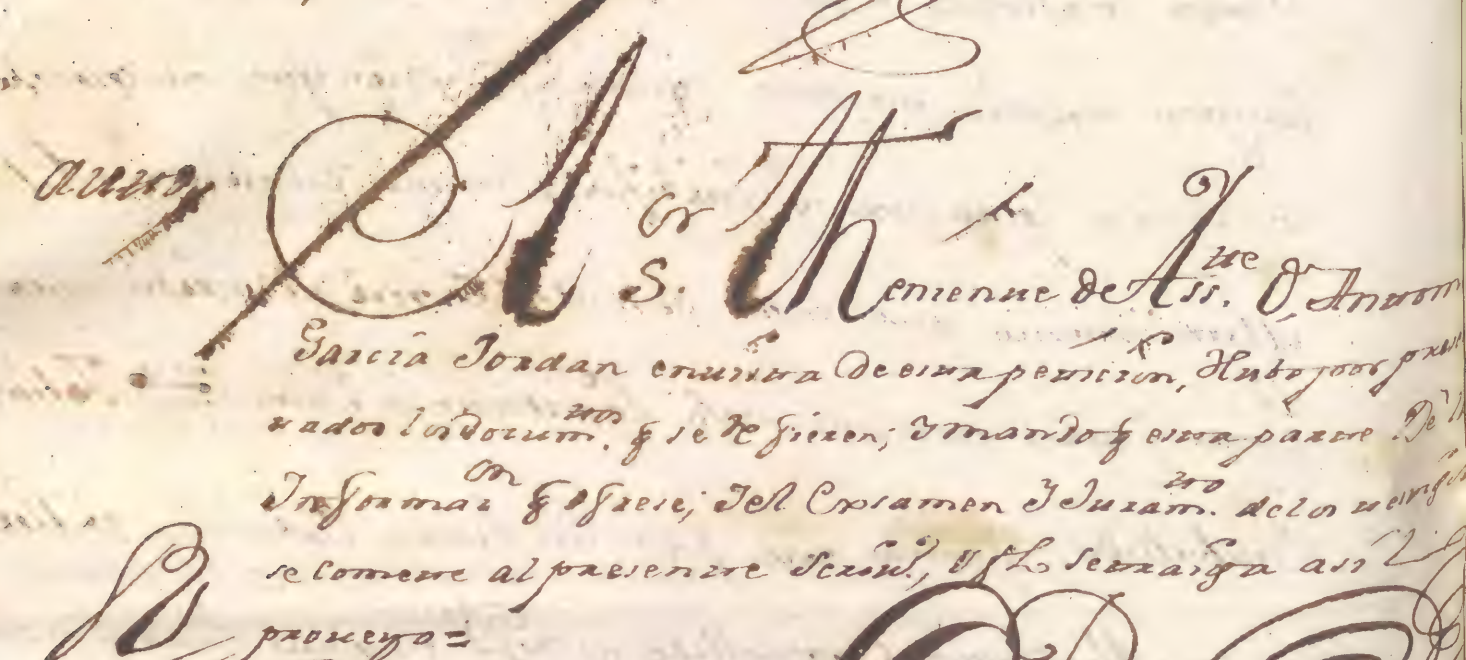 auto
El S.or Theniente de Ass.tte D. Anton
Garcia Jordan en vista De esta peticion, Hubo por presen
tados los docum.tos q se Refieren; y mando q esta parte De la
Informa.on q ofrese; y el Exsamen y Juram.to de los testigos
se comete al presente Scriv.o, y fho se traiga asi lo
proveyo=